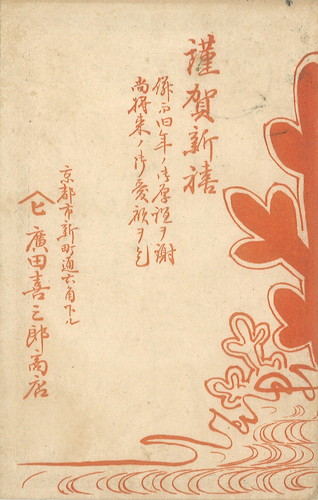 謹賀新禧
併而旧年ノ御厚誼ヲ謝
尚将来ノ御愛顧ヲ乞
京都市新町通六角下ル
ヒ 廣田喜三郎商店